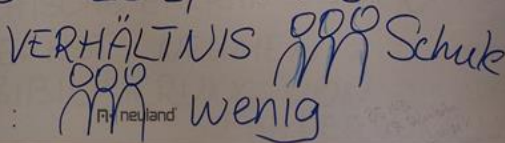 VERHÄLTNIS Schule
: neuland wenig